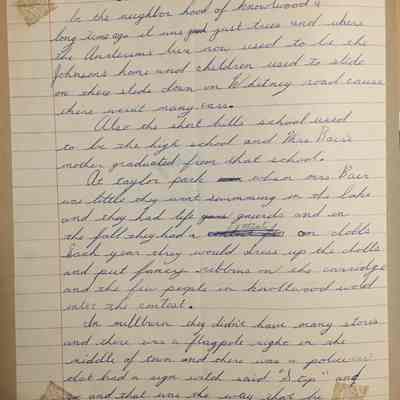 In the neighbor hood of Knowwood a
long time ago it was just trees and where
the Andersons live now used to be the
Johnsons home and children used to slide
on there sleds down on Whitney road cause
there werent many cars.
Also the short hills school used
to be the high school and Mrs. Baer
mother graduated from that school.
At taylor park when mrs. Baer
was little they went swimming in the lake
and they had life guards and in
the fall they had a on dolls
Each year they would dress up the dolls
and put fancy ribbons on the carriage
and the few people in knottwood wold
enter the contest.
In millburn they didn't have many stores
and there was a flagpole right in the
middle of town and there was a policeman
that had a sign witch said "Stop" and
and that was the way that he